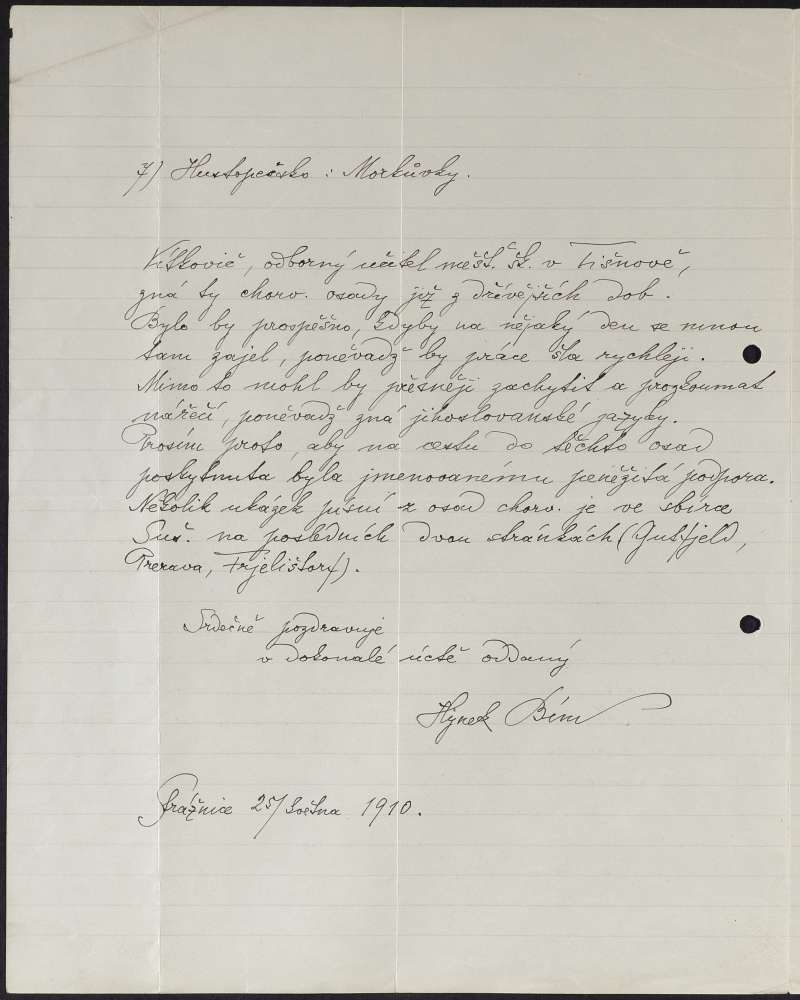 7) Hustopečsko : Morkůvky.
Vítkovič, odborný učitel měšť. šk. v Tišnově,
zná ty chorv. osady již z dřívějších dob.
Bylo by prospěšno, kdyby na nějaký den se mnou
tam zajel, poněvadž by práce šla rychleji.
Mimo to mohl by přesněji zachytit a prozkoumat
nářečí, poněvadž zná jihoslovanské jazyky.
Prosím proto, aby na cestu do těchto osad
poskytnuta byla jmenovanému peněžitá podpora.
Několik ukázek písní z osad chorv. je ve sbírce
Suš. na posledních dvou stránkách (Gutfjeld,
Prerava, Frjelištorf).
Srdečně pozdravuje
v dokonalé úctě oddaný
Hynek Bím
Strážnice 25/května 1910.